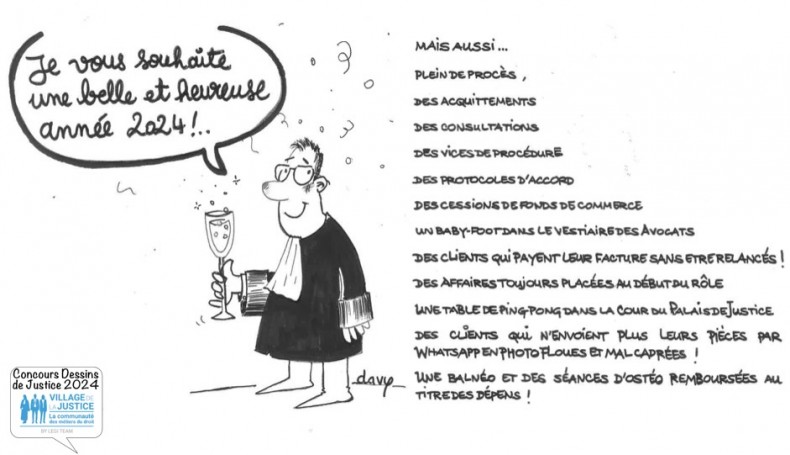 Je vous souhaite
une belle et heureuse
année 2024 !..
MAIS AUSSI...
PLEIN DE PROCÈS,
DES ACQUITTEMENTS
DES CONSULTATIONS
DES VICES DE PROCÉDURE
DES PROTOCOLES D'ACCORD
DES CESSIONS DE FONDS DE COMMERCE
UN BABY-FOOT DANS LE VESTIAIRE DES AVOCATS
DES CLIENTS QUI PAYENT LEUR FACTURE SANS ETRE RELANCÉS !
DES AFFAIRES TOUJOURS PLACÉES AU DÉBUT DU RÔLE
UNE TABLE DE PING-PONG DANS LA COUR DU PALAIS DE JUSTICE
DES CLIENTS QUI N'ENVOIENT PLUS LEURS PIÈCES PAR
WHATSAPP EN PHOTO FLOUES ET MAL CAPRÉES !
UNE BALNÉO ET DES SÉANCES D'OSTÉO REMBOURSÉES AU
TITRE DES DÉPENS !
davy
Concours Dessins
de Justice 2024
VILLAGE DE
LA JUSTICE
La communauté
des métiers du droit
BY LEGI TEAM